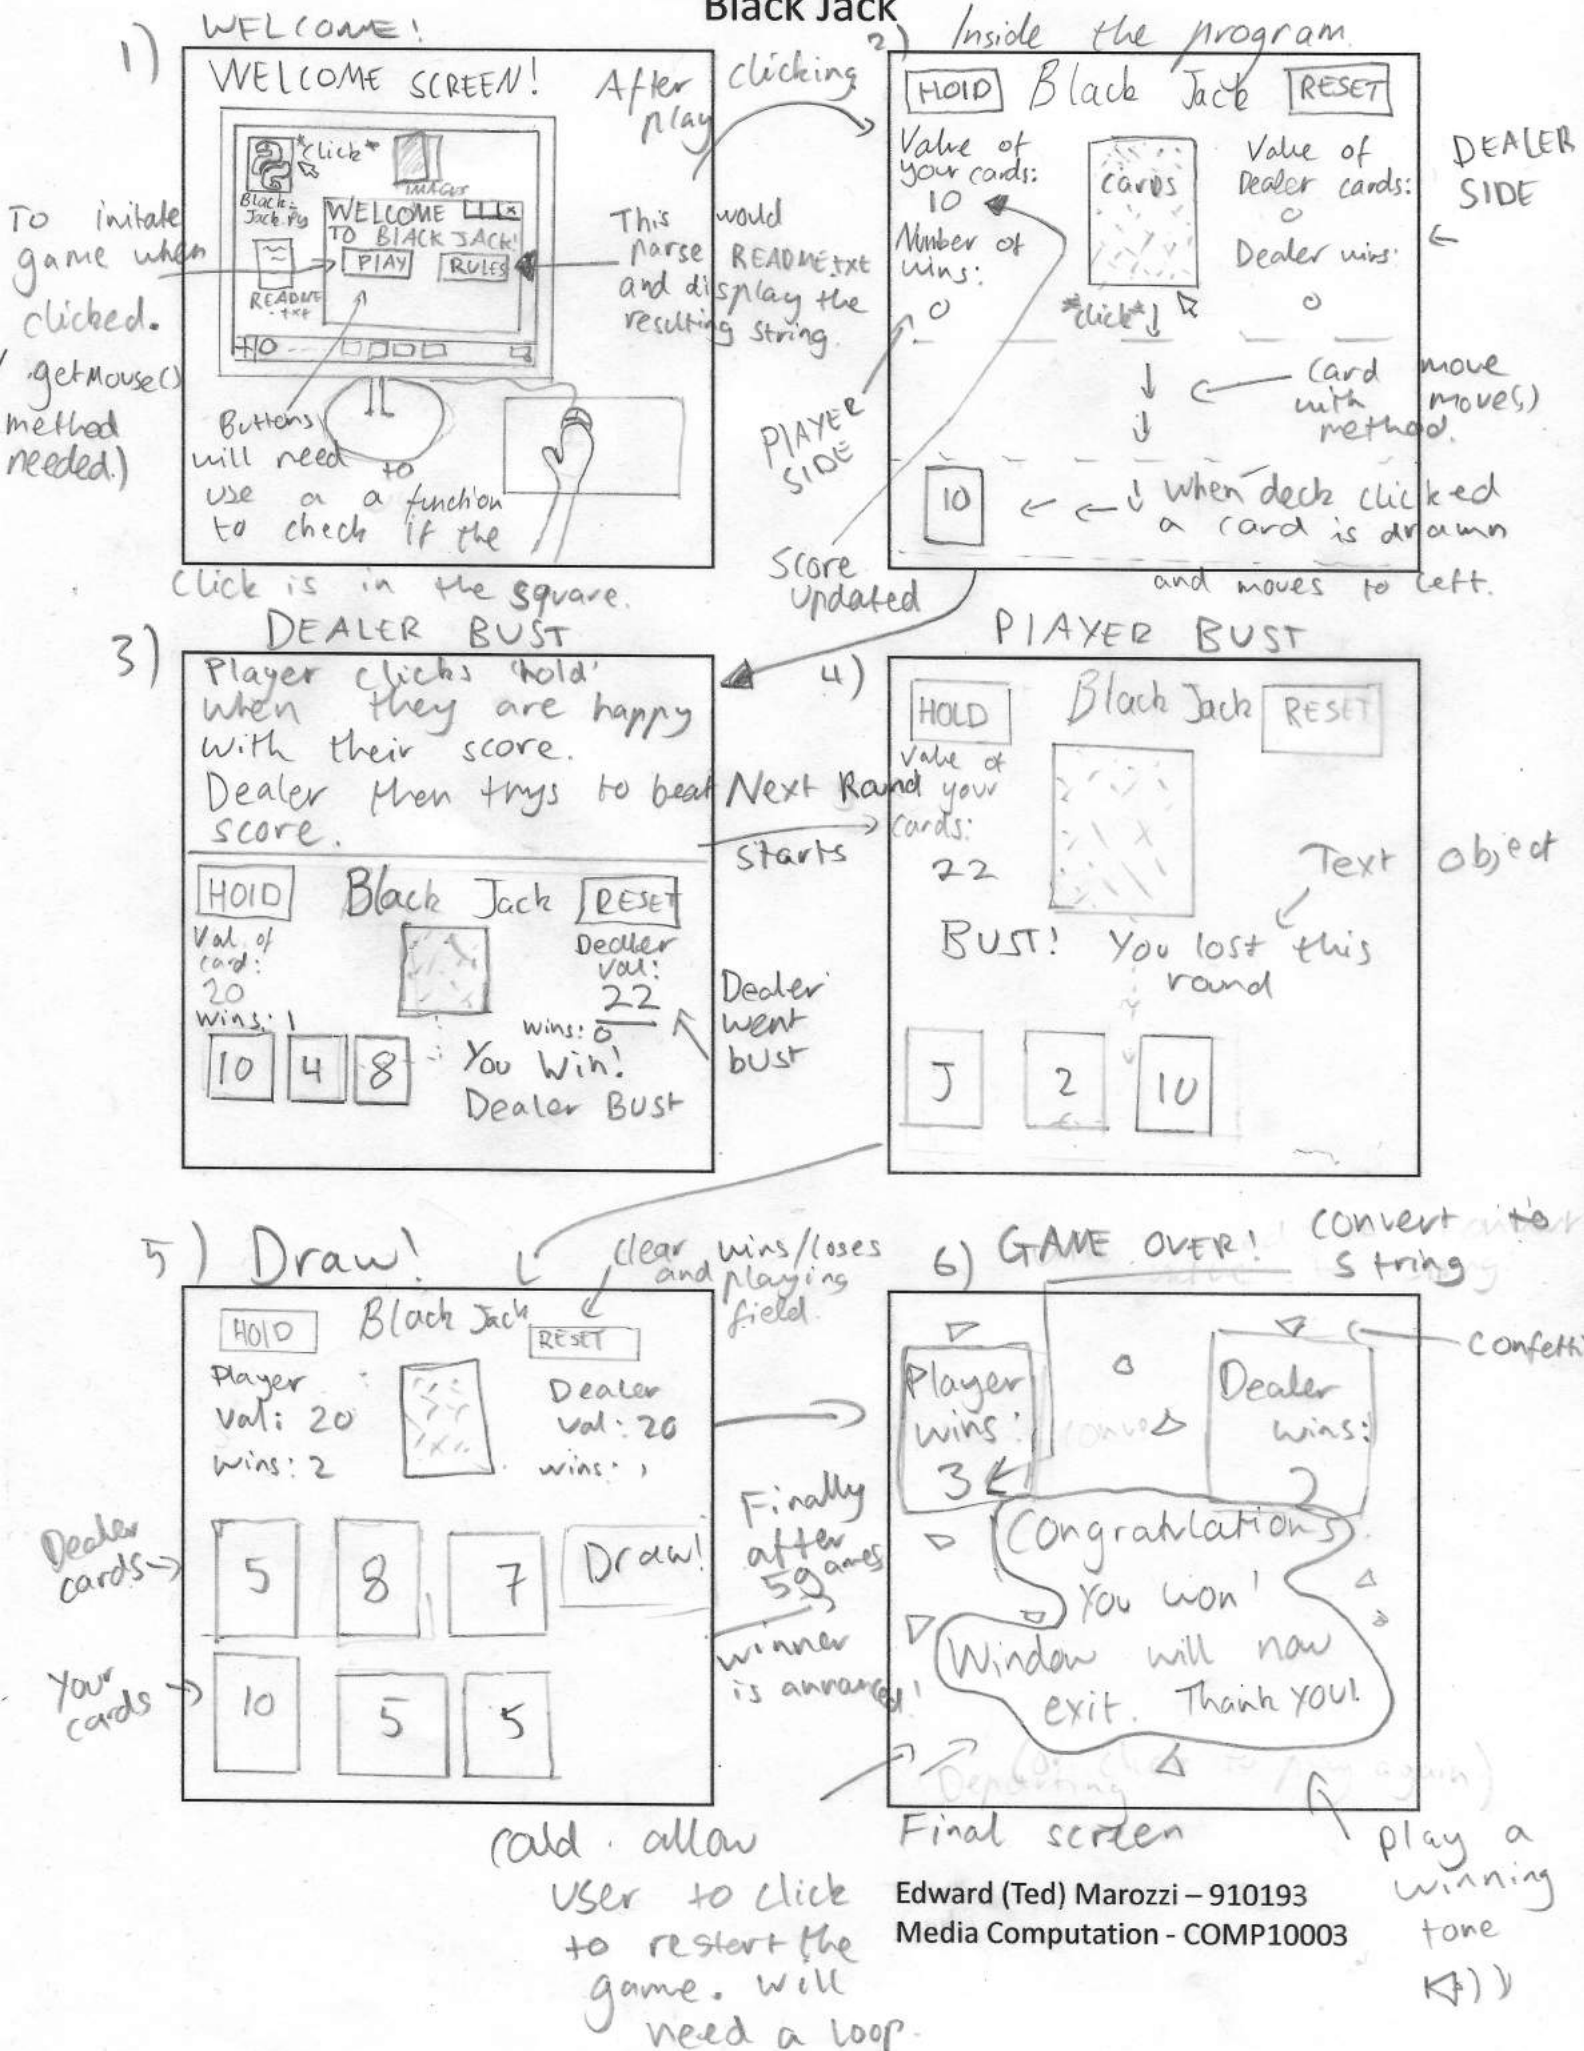 Black Jack
1) WELCOME!
WELCOME SCREEN!
After clicking
play
*click*
Black-
Jack.py
IMAGES
README
.txt
WELCOME
TO BLACK JACK!
PLAY RULES
To initate
game when
clicked.
.getMouse()
method
needed.)
This would
parse README.txt
and display the
resulting string.
Buttons
will need to
use a a function
to check if the
click is in the square.
2) Inside the program.
HOLD Black Jack RESET
Value of
your cards:
10
Number of
wins:
0
cards
*click*
Value of
Dealer cards:
0
Dealer wins:
0
DEALER
SIDE
PLAYER
SIDE
Score
Updated
card move
with move()
method.
10
when deck clicked
a card is drawn
and moves to left.
3) DEALER BUST
Player clicks 'hold'
when they are happy
with their score.
Dealer then trys to beat
score.
HOLD Black Jack RESET
Val. of
card:
20
wins: 1
Dealer
val:
22
wins: 0
10 4 8
You Win!
Dealer Bust
Dealer
went
bust
Next Round
starts
4) PLAYER BUST
HOLD Black Jack RESET
Value of
your
cards:
22
Text object
BUST! You lost this
round
J 2 10
5) Draw!
clear wins/loses
and playing
field.
HOLD Black Jack RESET
Player
val: 20
wins: 2
Dealer
val: 20
wins: 1
Dealer
cards
5 8 7 Draw!
Your
cards
10 5 5
Finally
after
5 games
winner
is announced!
6) GAME OVER!
convert to
string
Confetti
Player
wins:
3
Dealer
wins:
2
Congratulations
You won!
Window will now
exit. Thank you!
Final screen
could allow
user to click
to restart the
game. will
need a loop.
play a
winning
tone
Edward (Ted) Marozzi – 910193
Media Computation - COMP10003